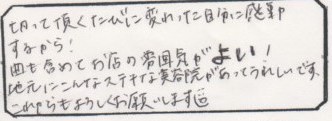 切って頂くたびに変わった自分に感動
するから!
曲も含めてお店の雰囲気がよい!
地元にこんなステキな美容院があってうれしいです。
これからもよろしくお願いします